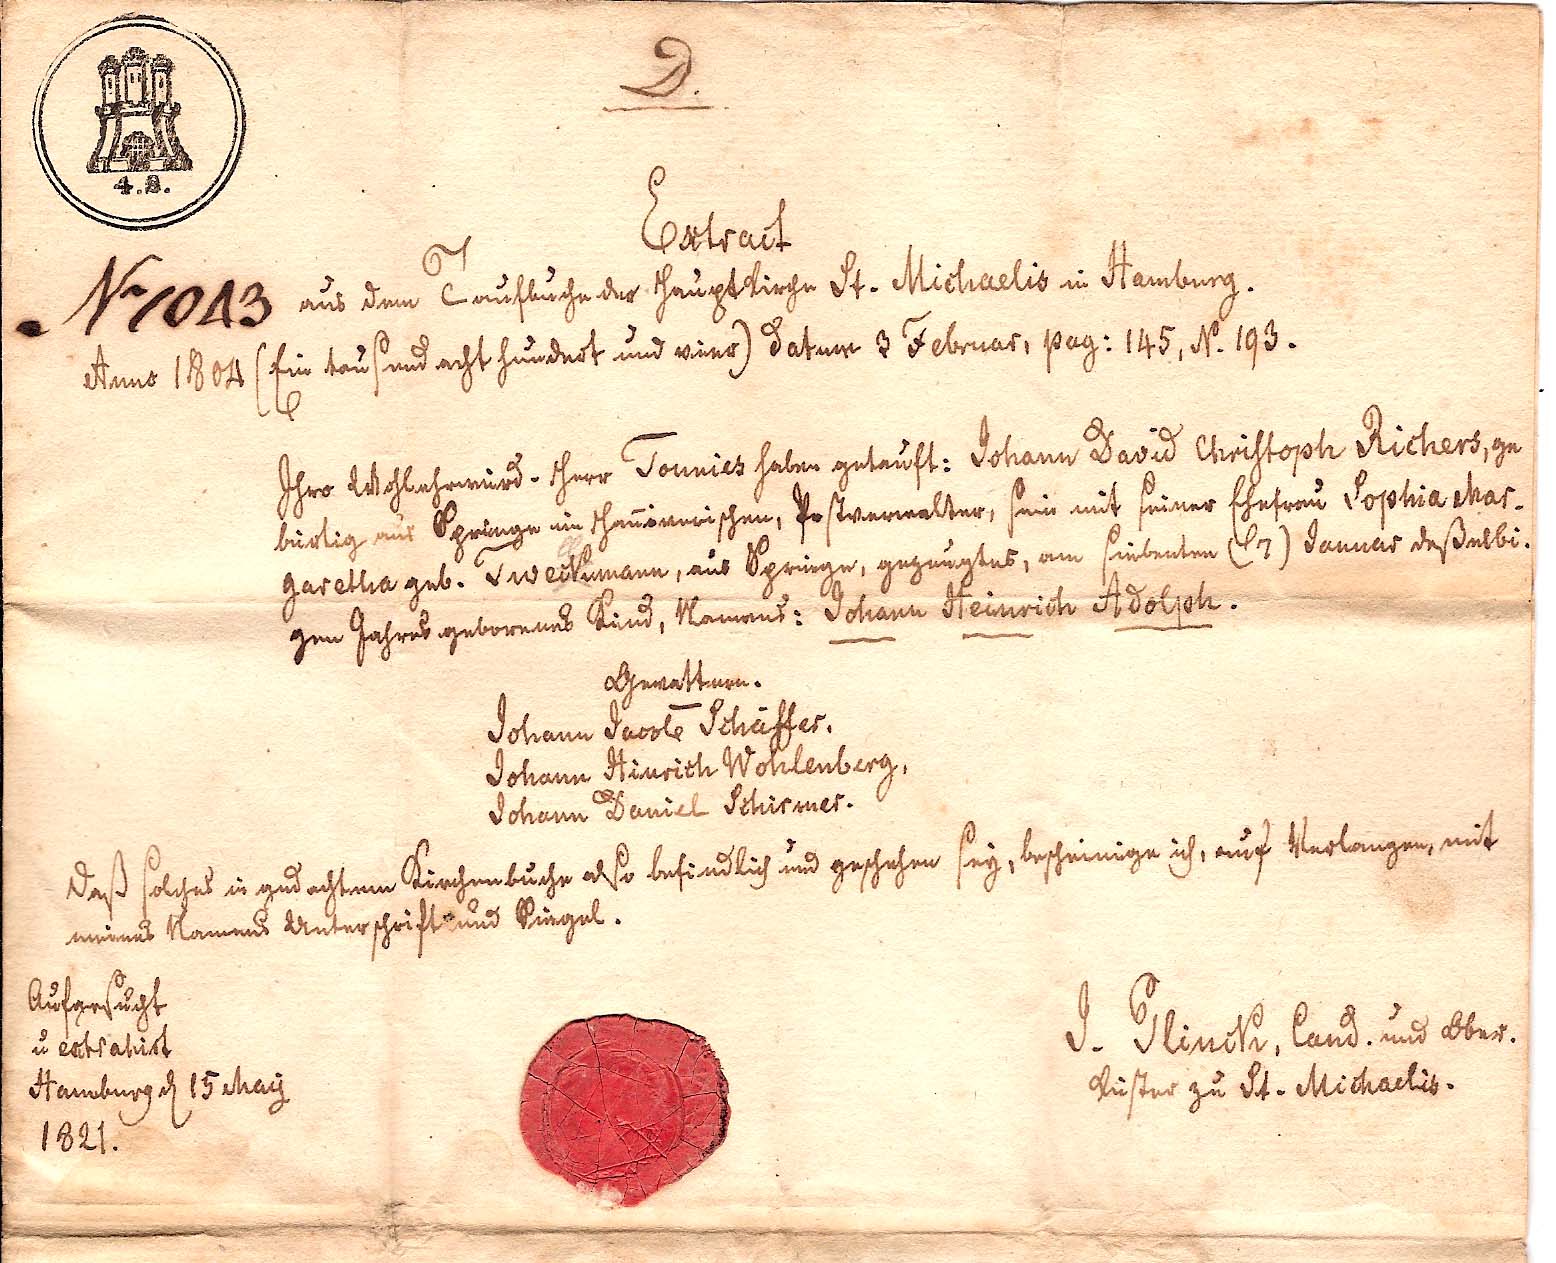 D.
4.S.
Extract
No 1043 aus dem Taufbuche der Hauptkirche St. Michaelis in Hamburg.
Anno 1804 (Ein tausend acht hundert und vier) Datum 3 Februar, pag: 145, N. 193.
Ihro Wohlehrwürd. Herr Tonnies haben getauft: Johann David Christoph Richers, ge
bürtig aus Springe im Hanöverischen, Postverwalter, sein mit seiner Ehefrau Sophia Mar-
garetha geb. Tweckmann, aus Springe, gezeugtes, am siebenten (7) Januar deßselbi-
gen Jahres geborenes Kind, Namens: Johann Heinrich Adolph.
Gevattern.
Johann Jacob Schäffer.
Johann Hinrich Wohlenberg,
Johann Daniel Schirmer.
Daß solches in gedachtem Kirchenbuche also befindlich und geschehen sey, bescheinige ich, auf Verlangen, mit
meines Namens Unterschrift und Siegel.
Aufgesucht
u extrahirt
Hamburg d 15 May
1821.
J. Flinck, Cand. und Ober-
küster zu St. Michaelis.